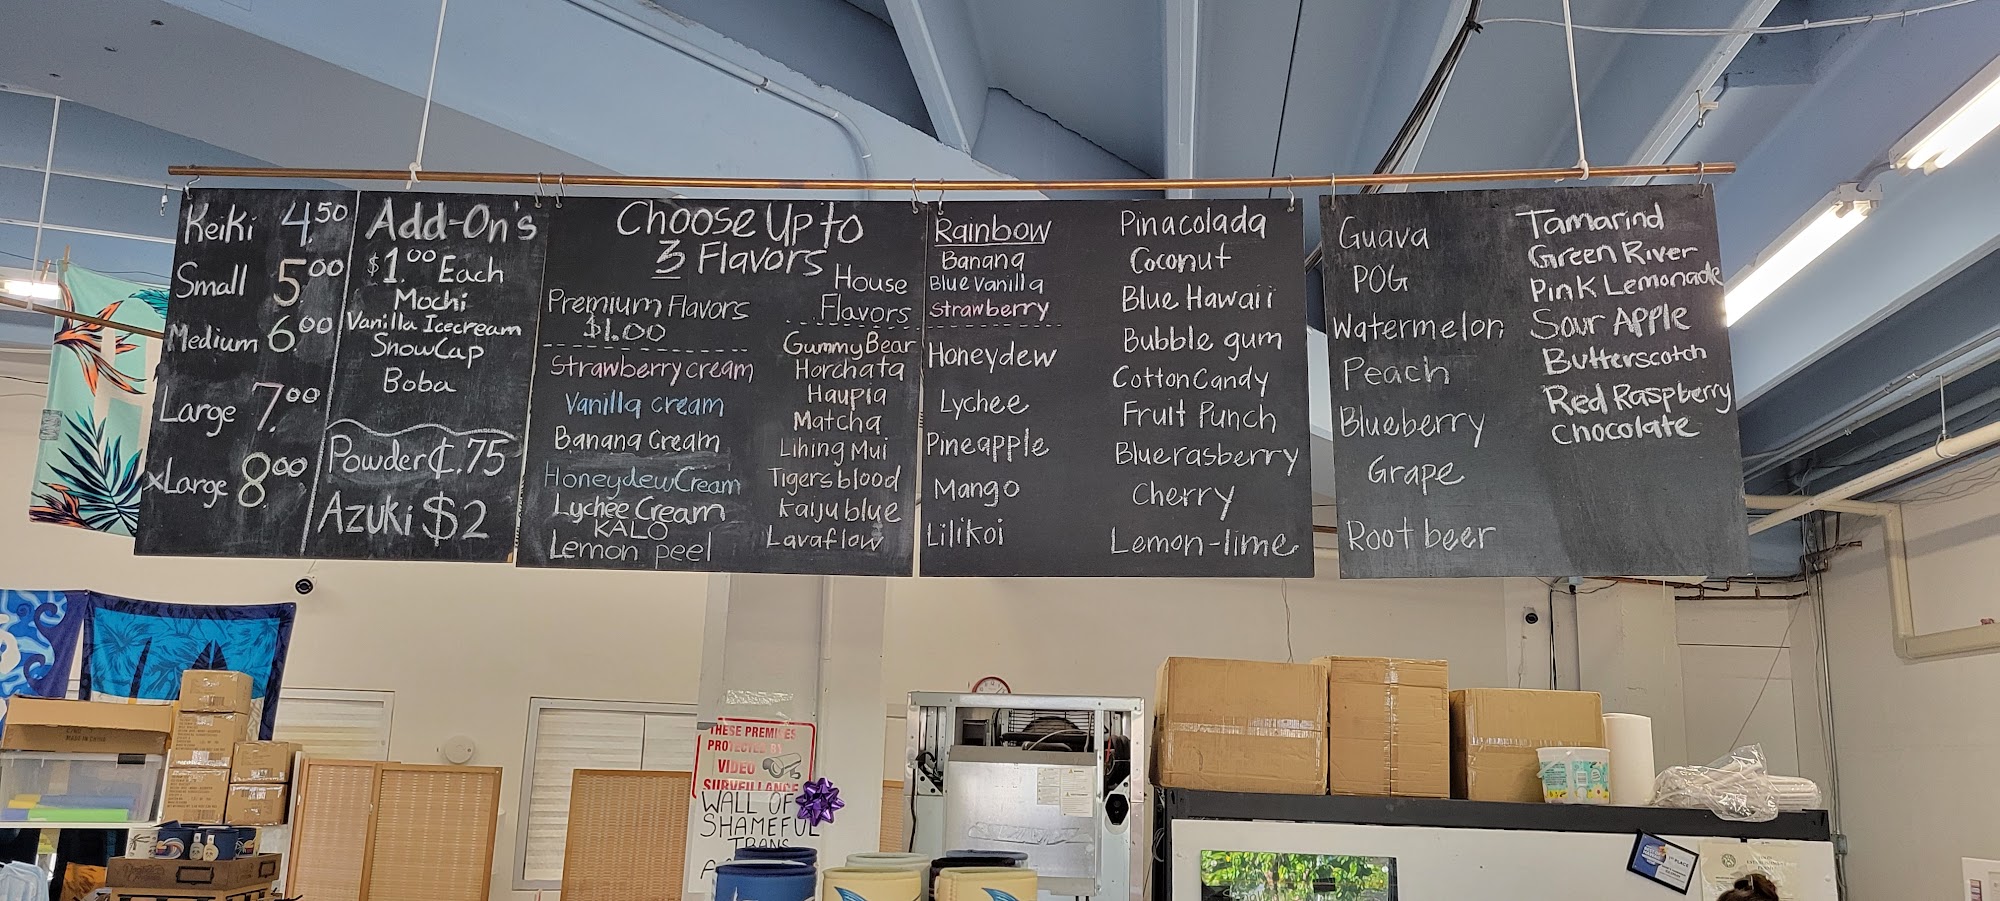 Keiki 4.50
Small 5.00
Medium 6.00
Large 7.00
xLarge 8.00
Add-On's
$1.00 Each
Mochi
Vanilla Icecream
SnowCap
Boba
Powder ¢.75
Azuki $2
Choose Up to
3 Flavors
Premium Flavors
$1.00
Strawberry cream
Vanilla cream
Banana Cream
Honeydew Cream
Lychee Cream
KALO
Lemon peel
House
Flavors
Gummy Bear
Horchata
Haupia
Matcha
Lihing Mui
Tigers blood
Kaiju blue
Lavaflow
Rainbow
Banana
Blue Vanilla
Strawberry
Honeydew
Lychee
Pineapple
Mango
Lilikoi
Pinacolada
Coconut
Blue Hawaii
Bubble gum
Cotton Candy
Fruit Punch
Bluerasberry
Cherry
Lemon-lime
Guava
POG
Watermelon
Peach
Blueberry
Grape
Root beer
Tamarind
Green River
Pink Lemonade
Sour Apple
Butterscotch
Red Raspberry
Chocolate
THESE PREMISES
PROTECTED BY
VIDEO
SURVEILLANCE
WALL OF
SHAMEFUL
TRANS
1st PLACE